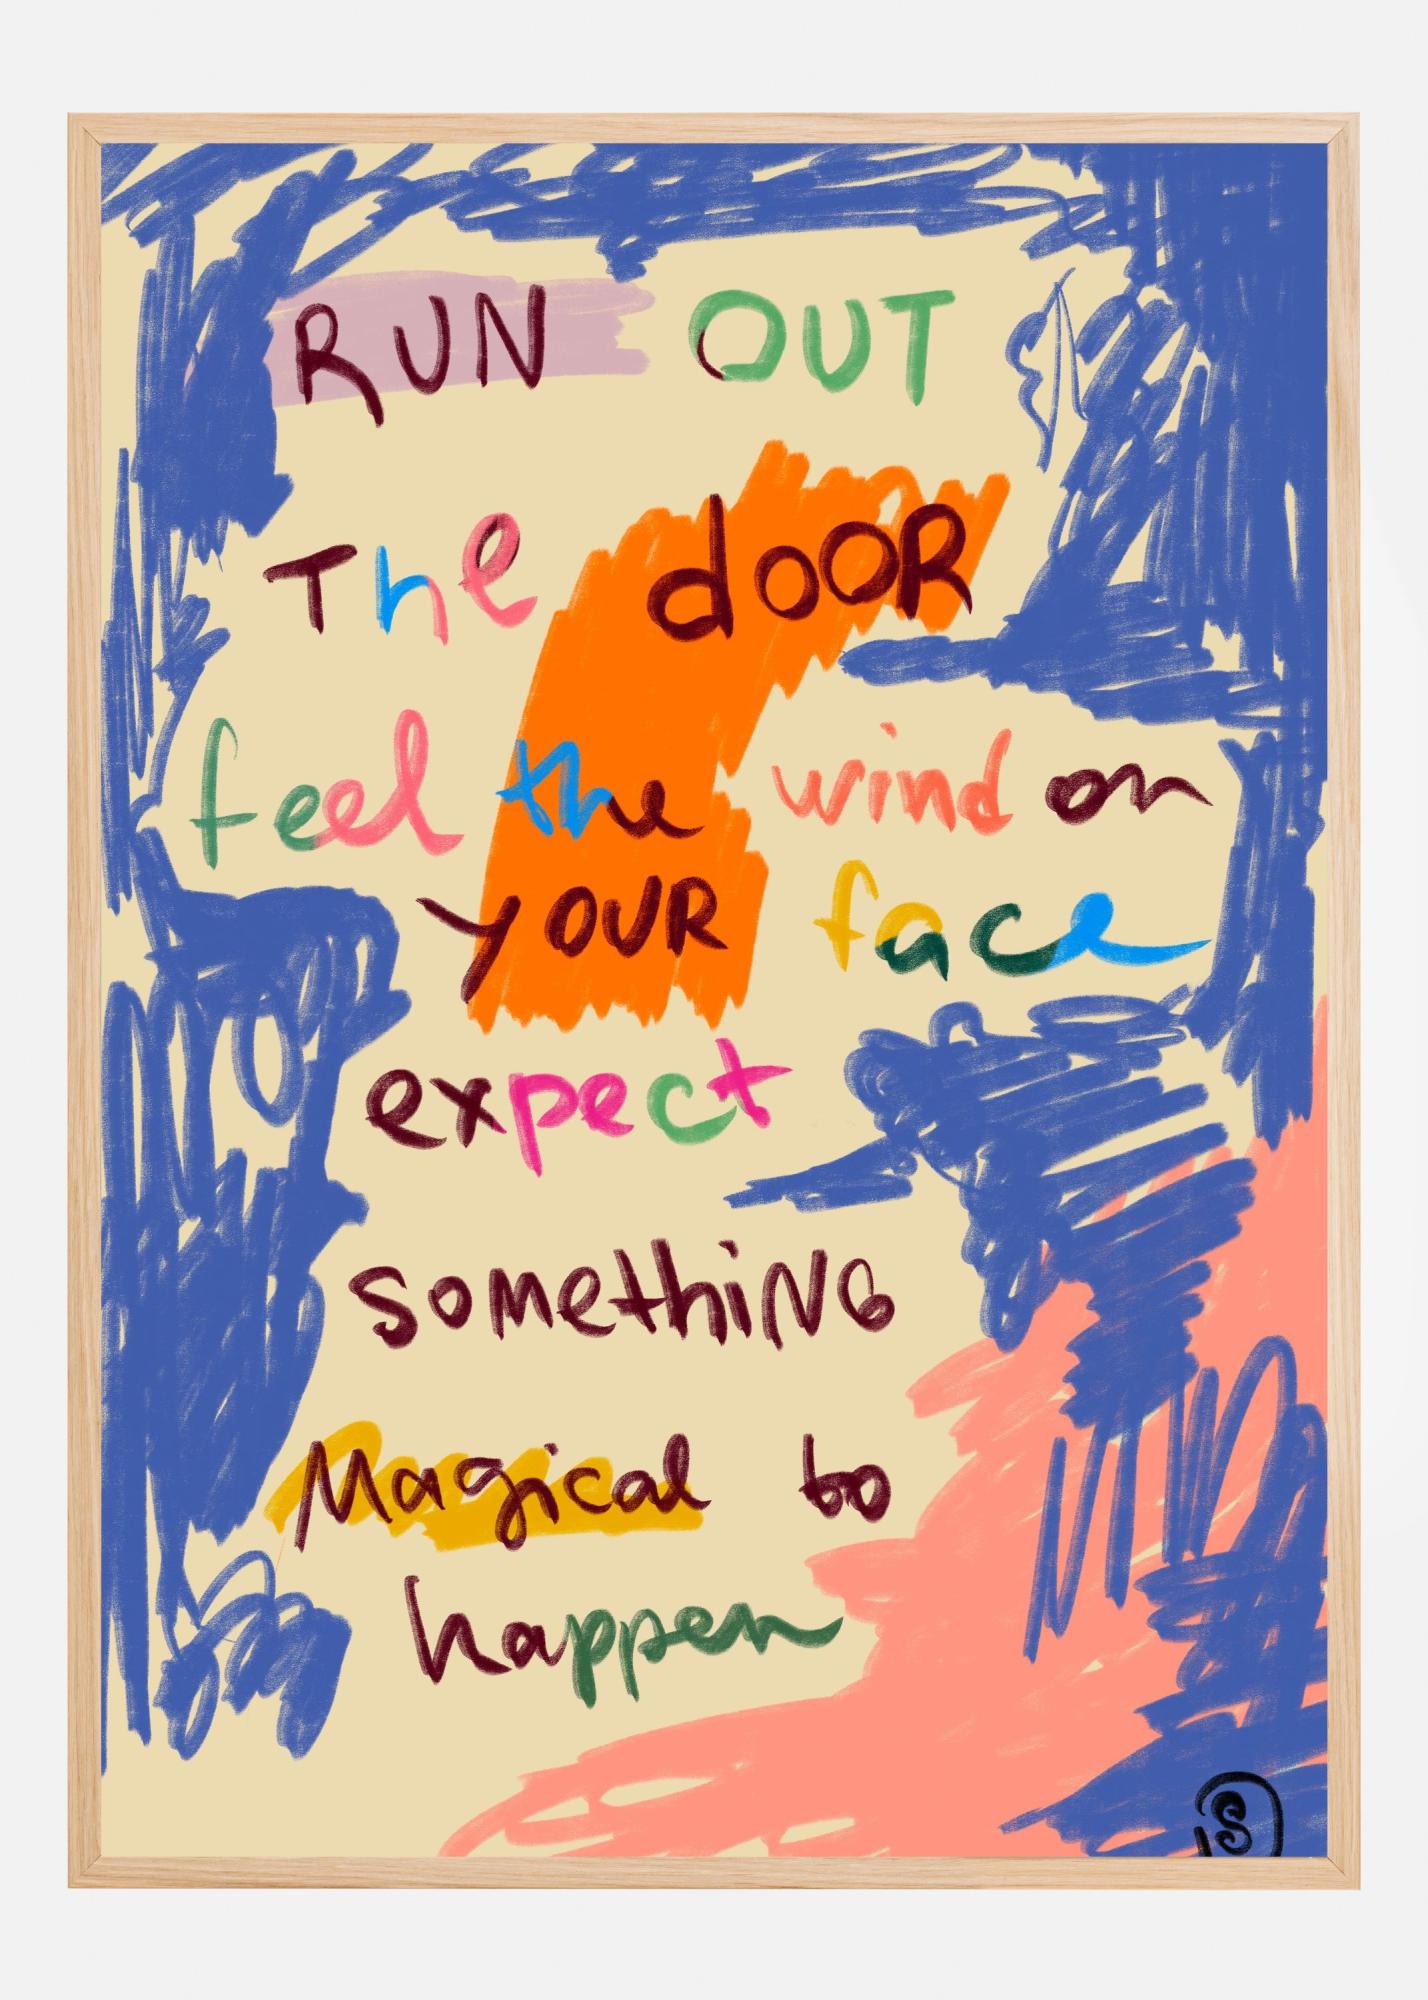 RUN OUT
The dooR
feel the wind on
YOUR face
expect
somethiNG
Magical to
happen
S